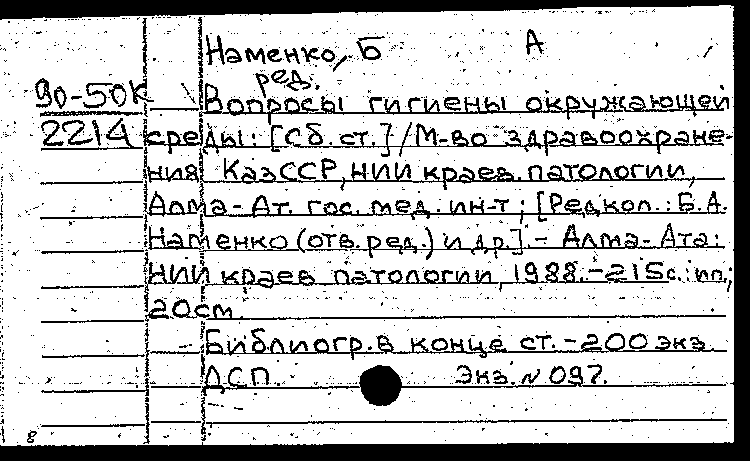 Наменко, Б А
ред.
90-50К Вопросы гигиены окружающей
2214 среды: [Сб. ст.] / М-во здравоохране-
ния КазССР, НИИ краев. патологии,
Алма-Ат. гос. мед. ин-т; [Редкол.: Б.А.
Наменко (отв. ред.) и др.]. - Алма-Ата:
НИИ краев патологии, 1988. - 215с.: ил.;
20см.
Библиогр. в конце ст. - 200 экз.
ДСП. Экз. № 097.
8